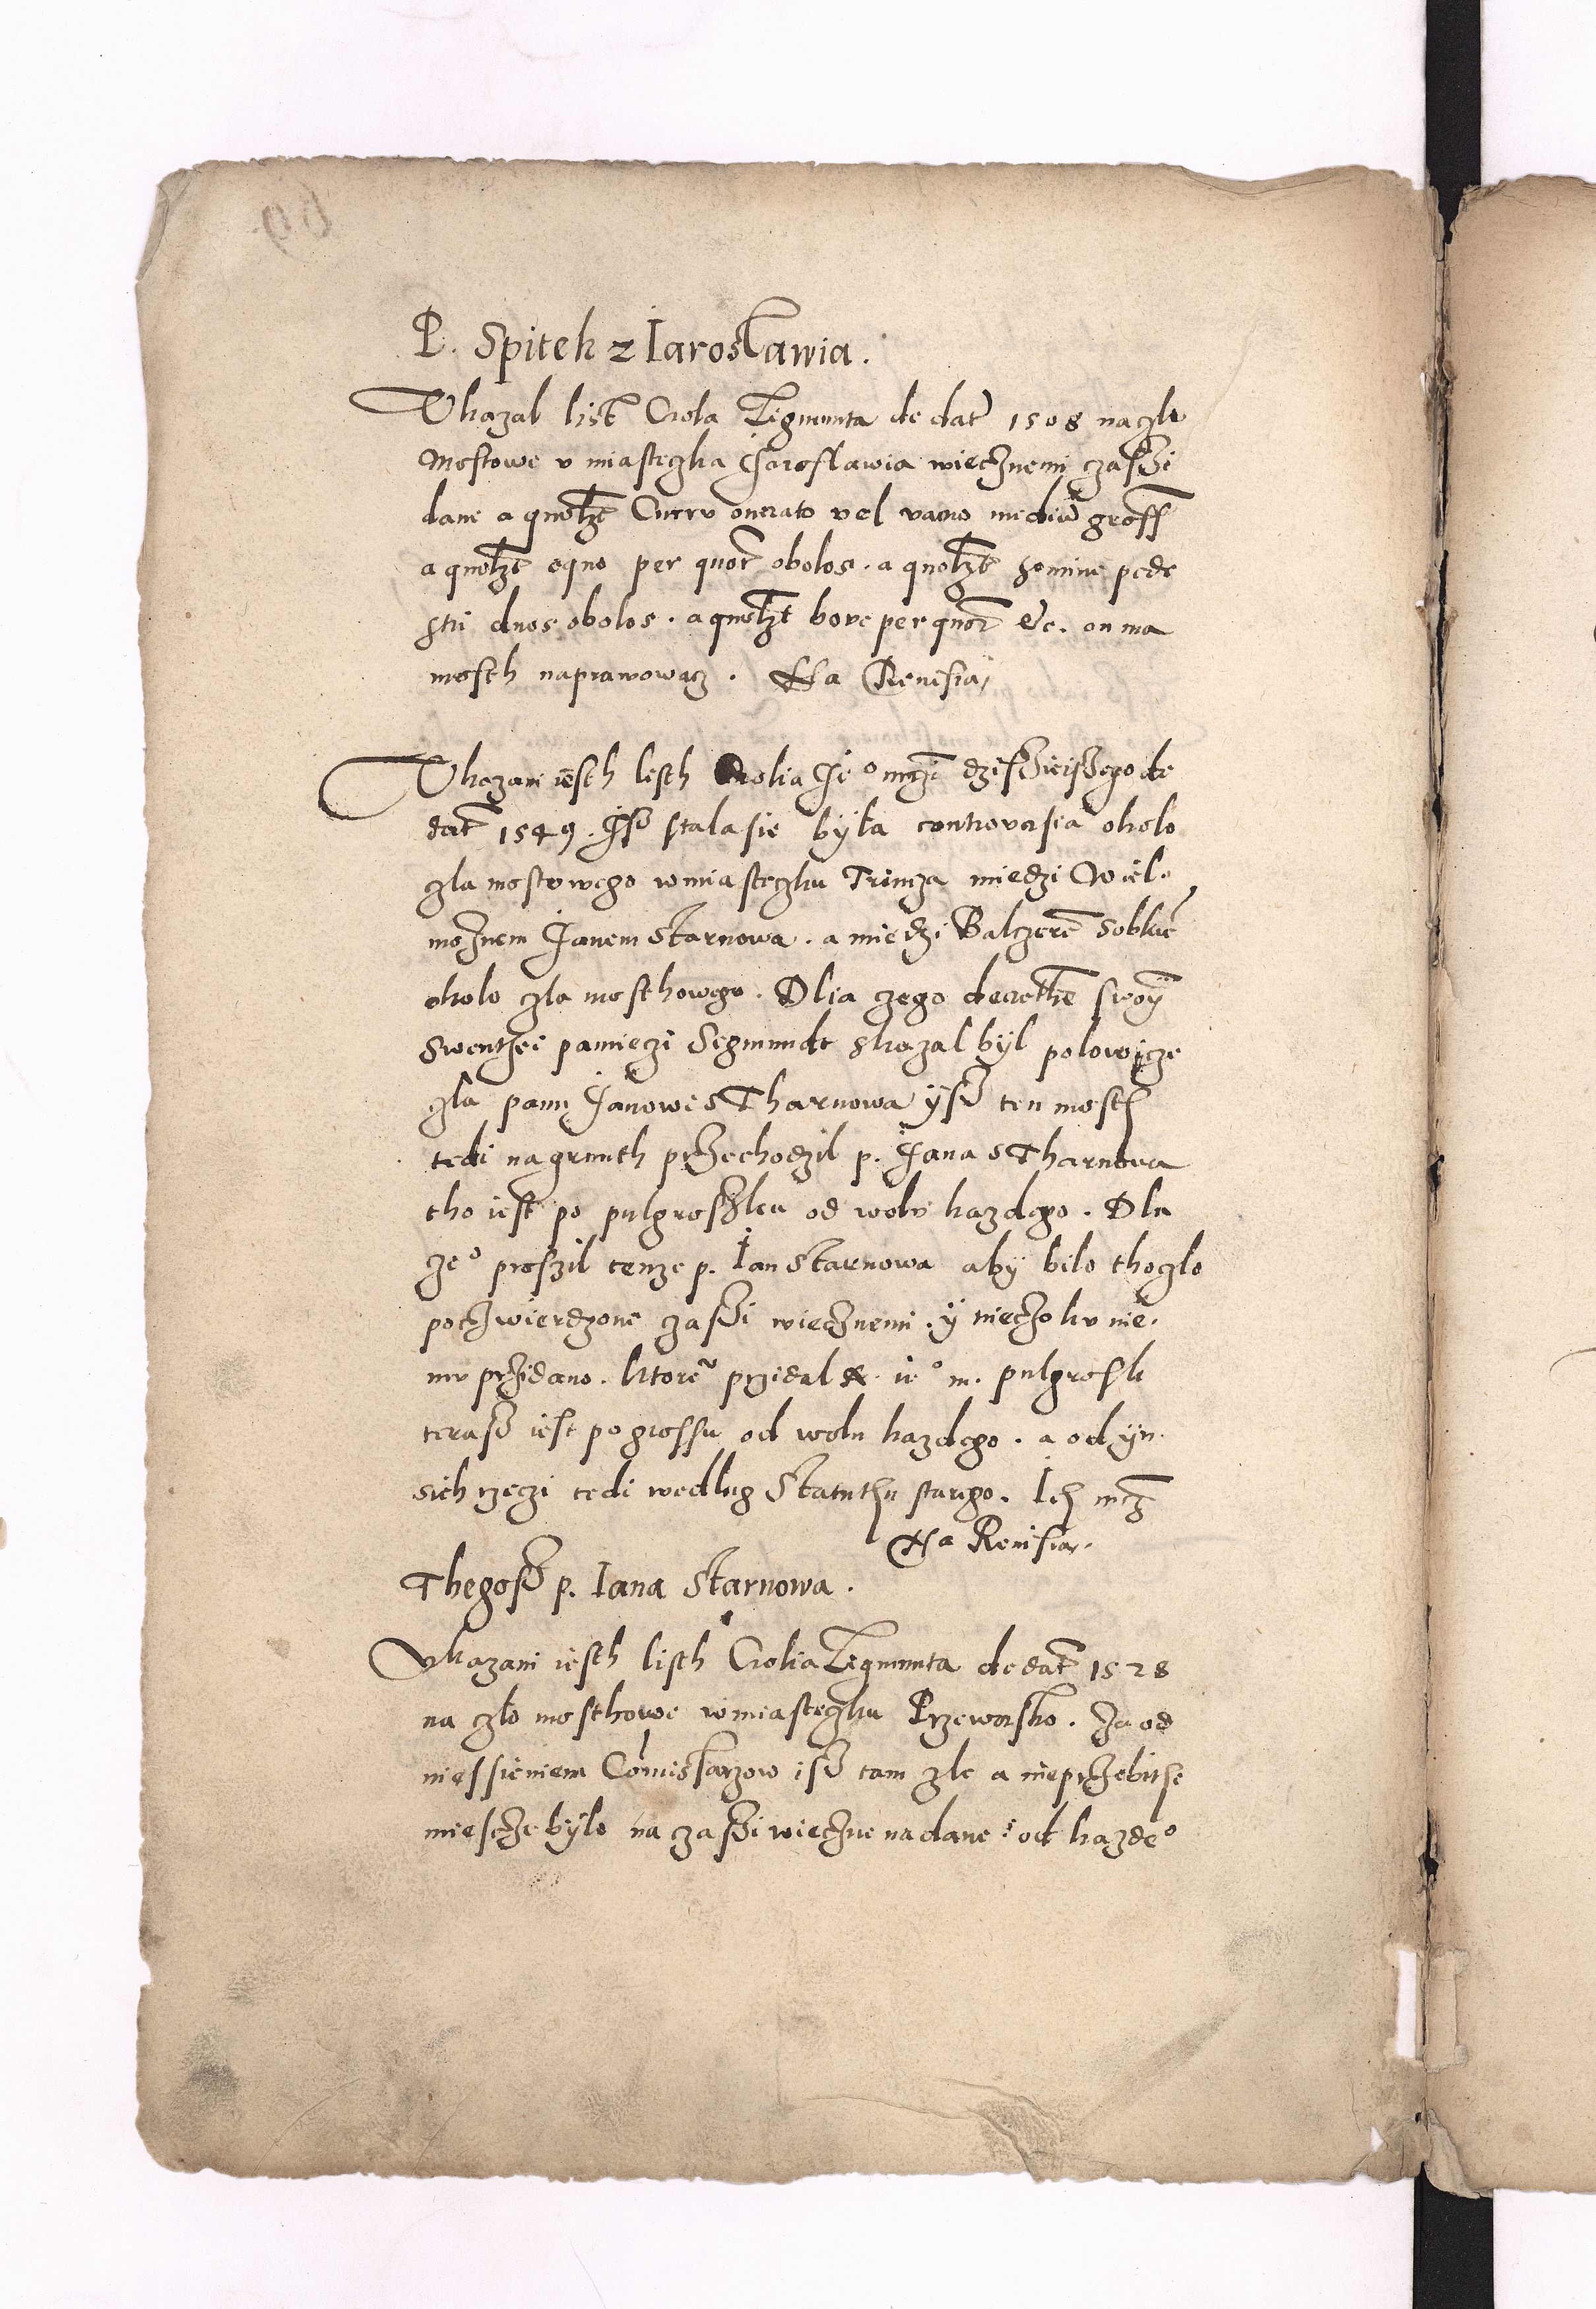 P. Spitek z Iarosławia.
Vkazal list Crola Zigmunta de dat 1508 na czlo
Mostowe v miasteczka Jaroslawia wiecznemi czassi
dane a quolzt Curru onerato vel vacuo mediu gross
a quolzt equo per quor obolos. a quolzt homine pede
stri duos obolos. a quolzt bove per quor etc. on ma
mosth naprawowacz. Na Revisia
Vkazani iesth listh Crolia Je° mczi dzissieissego de
dat 1549. Jss stala sie była controversia okolo
czla mostowego w miasteczku Trincza miedzi Wiel-
moznem Janem s Tarnowa. a miedzi Balczere
okolo czla mosthowego. Dlia czego decrethe swoy
Swenthei pamieczi Segmundt skazal był polowicze
czla panu Janowi s Tharnowa yss ten mosth
tedi na grunth przechodzil p. Jana s Tharnowa
tho iest po pulgroszku od wolu kazdego. Dla
cze° proszil tenze p. Jan s Tarnowa aby bilo tho czlo
poczwierdzone czassi wiecznemi. y nieczo ku nie-
mv przidano. ktore przidal ie° m. pulgrosk
terass iest po grossu od wolu kazdego. a od yn-
sich rzeczi tedi wedlug Statuthu starego. Ich mcz
Na Revisia.
Thegoss p. Iana s Tarnowa.
Vkazani iesth listh Crolia Zigmunta de dat 1528
na czło mosthowe w miasteczku Przeworsko. Za od
niessieniem Comissarzow iss tam zle a nieprzebithe
miescze było na czassi wieczne nadane: od kazde°